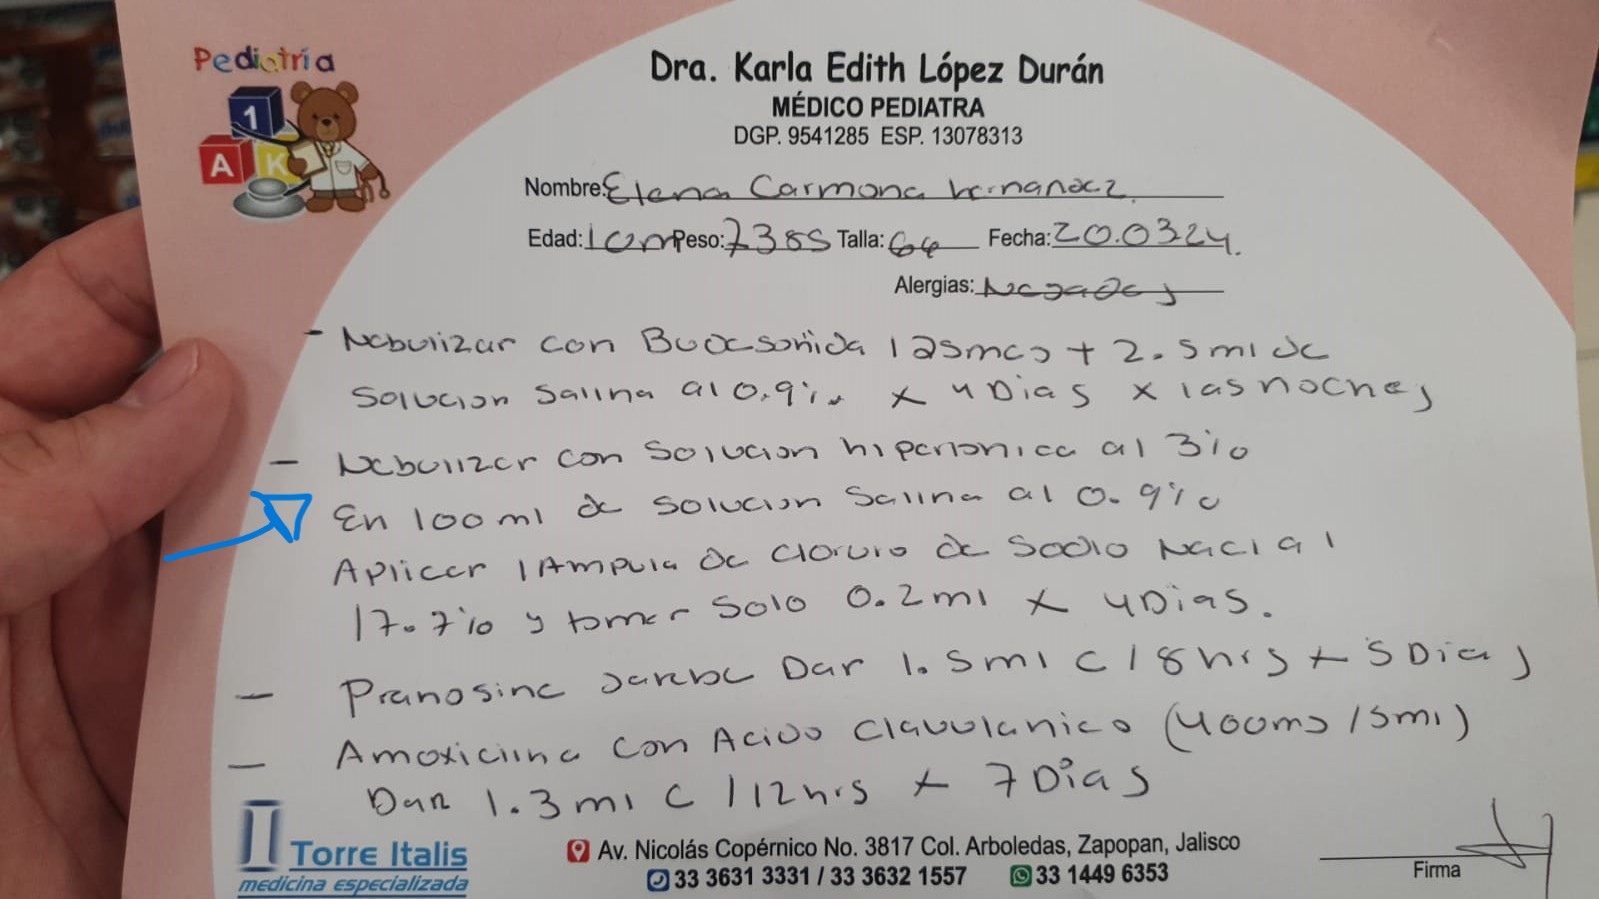 Pediatría
1
A K
Dra. Karla Edith López Durán
MÉDICO PEDIATRA
DGP. 9541285 ESP. 13078313
Nombre: Elena Carmona Hernandez
Edad: 10m Peso: 7385 Talla: 64 Fecha: 20.03.24.
Alergias: Negadas
- Nebulizar con Budesonida 125mcg + 2.5ml de
Solucion Salina al 0.9% x 4 Dias x las noches
- Nebulizar con Solucion hipertonica al 3%
En 100ml de Solucion Salina al 0.9%
Aplicar 1 Ampula de Cloruro de Sodio Nacl al
17.7% y tomar Solo 0.2ml x 4 Dias.
- Pranosine Jarabe Dar 1.5ml c/8hrs x 5 Dias
- Amoxicilina con Acido Clavulanico (400mg/5ml)
Dar 1.3ml c/12hrs x 7 Dias
Torre Italis
medicina especializada
Av. Nicolás Copérnico No. 3817 Col. Arboledas, Zapopan, Jalisco
33 3631 3331 / 33 3632 1557 33 1449 6353
Firma